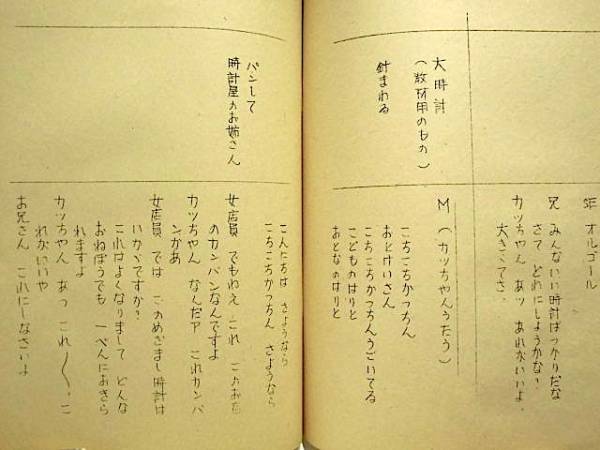 SE オルゴール
兄 みんないい時計ばっかりだな
さて どれにしようかな?
カッちゃん あッ あれがいいよ、
大きくてさ、
大時計
(教材用のもの)
針まわる
M(カッちゃんうたう)
こちこちかっちん
おとけいさん
こちこちかっちんうごいてる
こどものはりと
おとなのはりと
こんにちは さようなら
こちこちかっちん さようなら
パンして
時計屋のお姉さん
女店員 でもねえ これ このお店
のカンバンなんですよ
カッちゃん なんだア これカンバ
ンかあ
女店員 では このめざまし時計は
いかがですか?
これはよくなりまして どんな
おねぼうでも 一ぺんにおきら
れますよ
カッちゃん あっ これ〱、こ
れがいいや
お兄さん これにしなさいよ